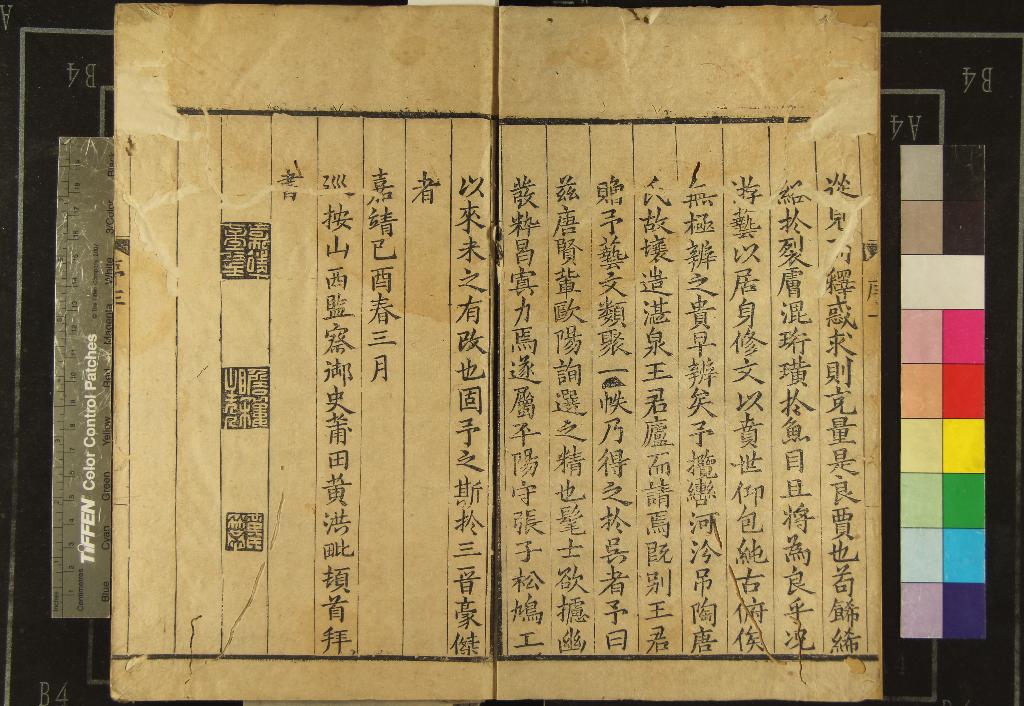 從見而釋惑求則克量是良賈也苟餙絺
綌扵裂膚混珩璜扵魚目且將為良乎况
游藝以居身修文以賁世仰包純古俯俟
無極辨之貴早辨矣予攬轡河汾吊陶唐
氏故壤造湛泉王君廬而請焉既别王君
贈予藝文類聚一帙乃得之扵吳者予曰
兹唐賢軰歐陽詢選之精也髦士欲攄幽
發粹曷寘力焉遂屬平陽守張子松鳩工
以來未之有改也固予之斯扵三晉豪傑
者
嘉靖已酉春三月
廵按山西監察御史莆田黄洪毗頓首拜
書
B4
A4
B4
TIFFEN Color Control Patches
Blue
Cyan
Green
Yellow
Red
Magenta
White
3/Color
Black
Inches
Centimetres